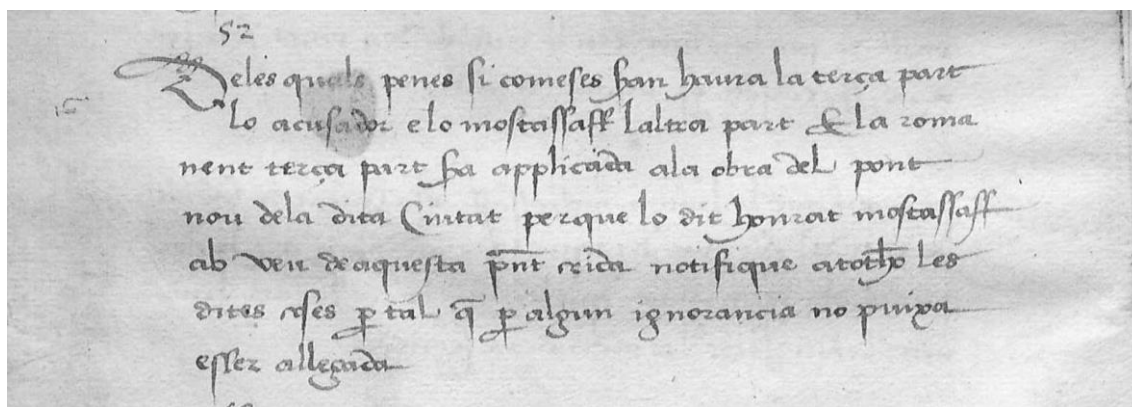 52
Deles quals penes si comeses seran haura la terça part
lo acusador e lo mostassaff laltra part & la roma
nent terça part sia applicada ala obra del pont
nou dela dita Ciutat perque lo dit honrat mostassaff
ab veu de aquesta pnt crida notifique atothō les
dites coses p tal q̄ p algun ignorancia no puixa
esser allegada